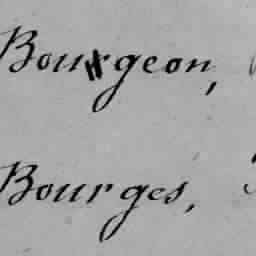 Bourgeon,
Bourges,